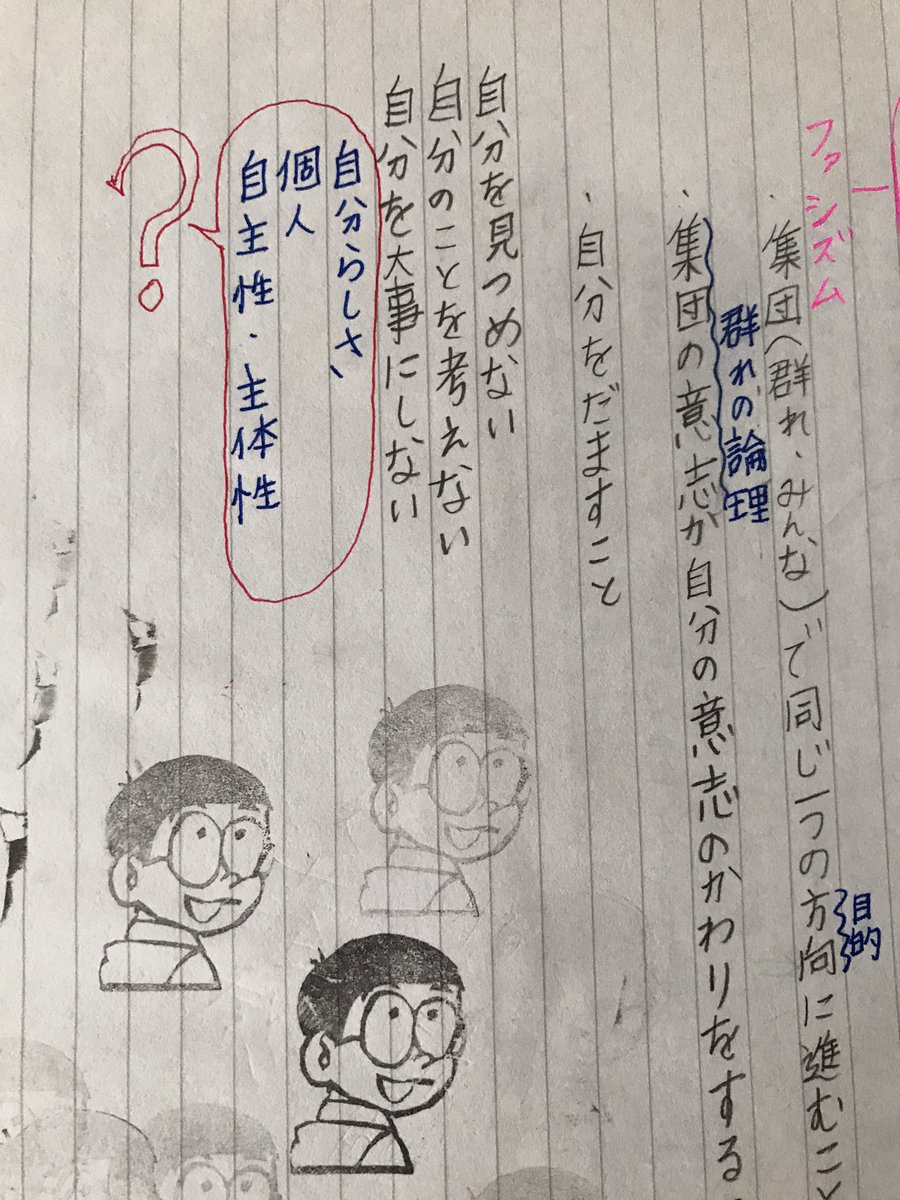 ファシズム
・集団(群れ、みんな)で同じ一つの方向に進むこと
目的
群れの論理
・集団の意志が自分の意志のかわりをする
・自分をだますこと
自分を見つめない
自分のことを考えない
自分を大事にしない
自分らしさ、
個人
自主性・主体性
?